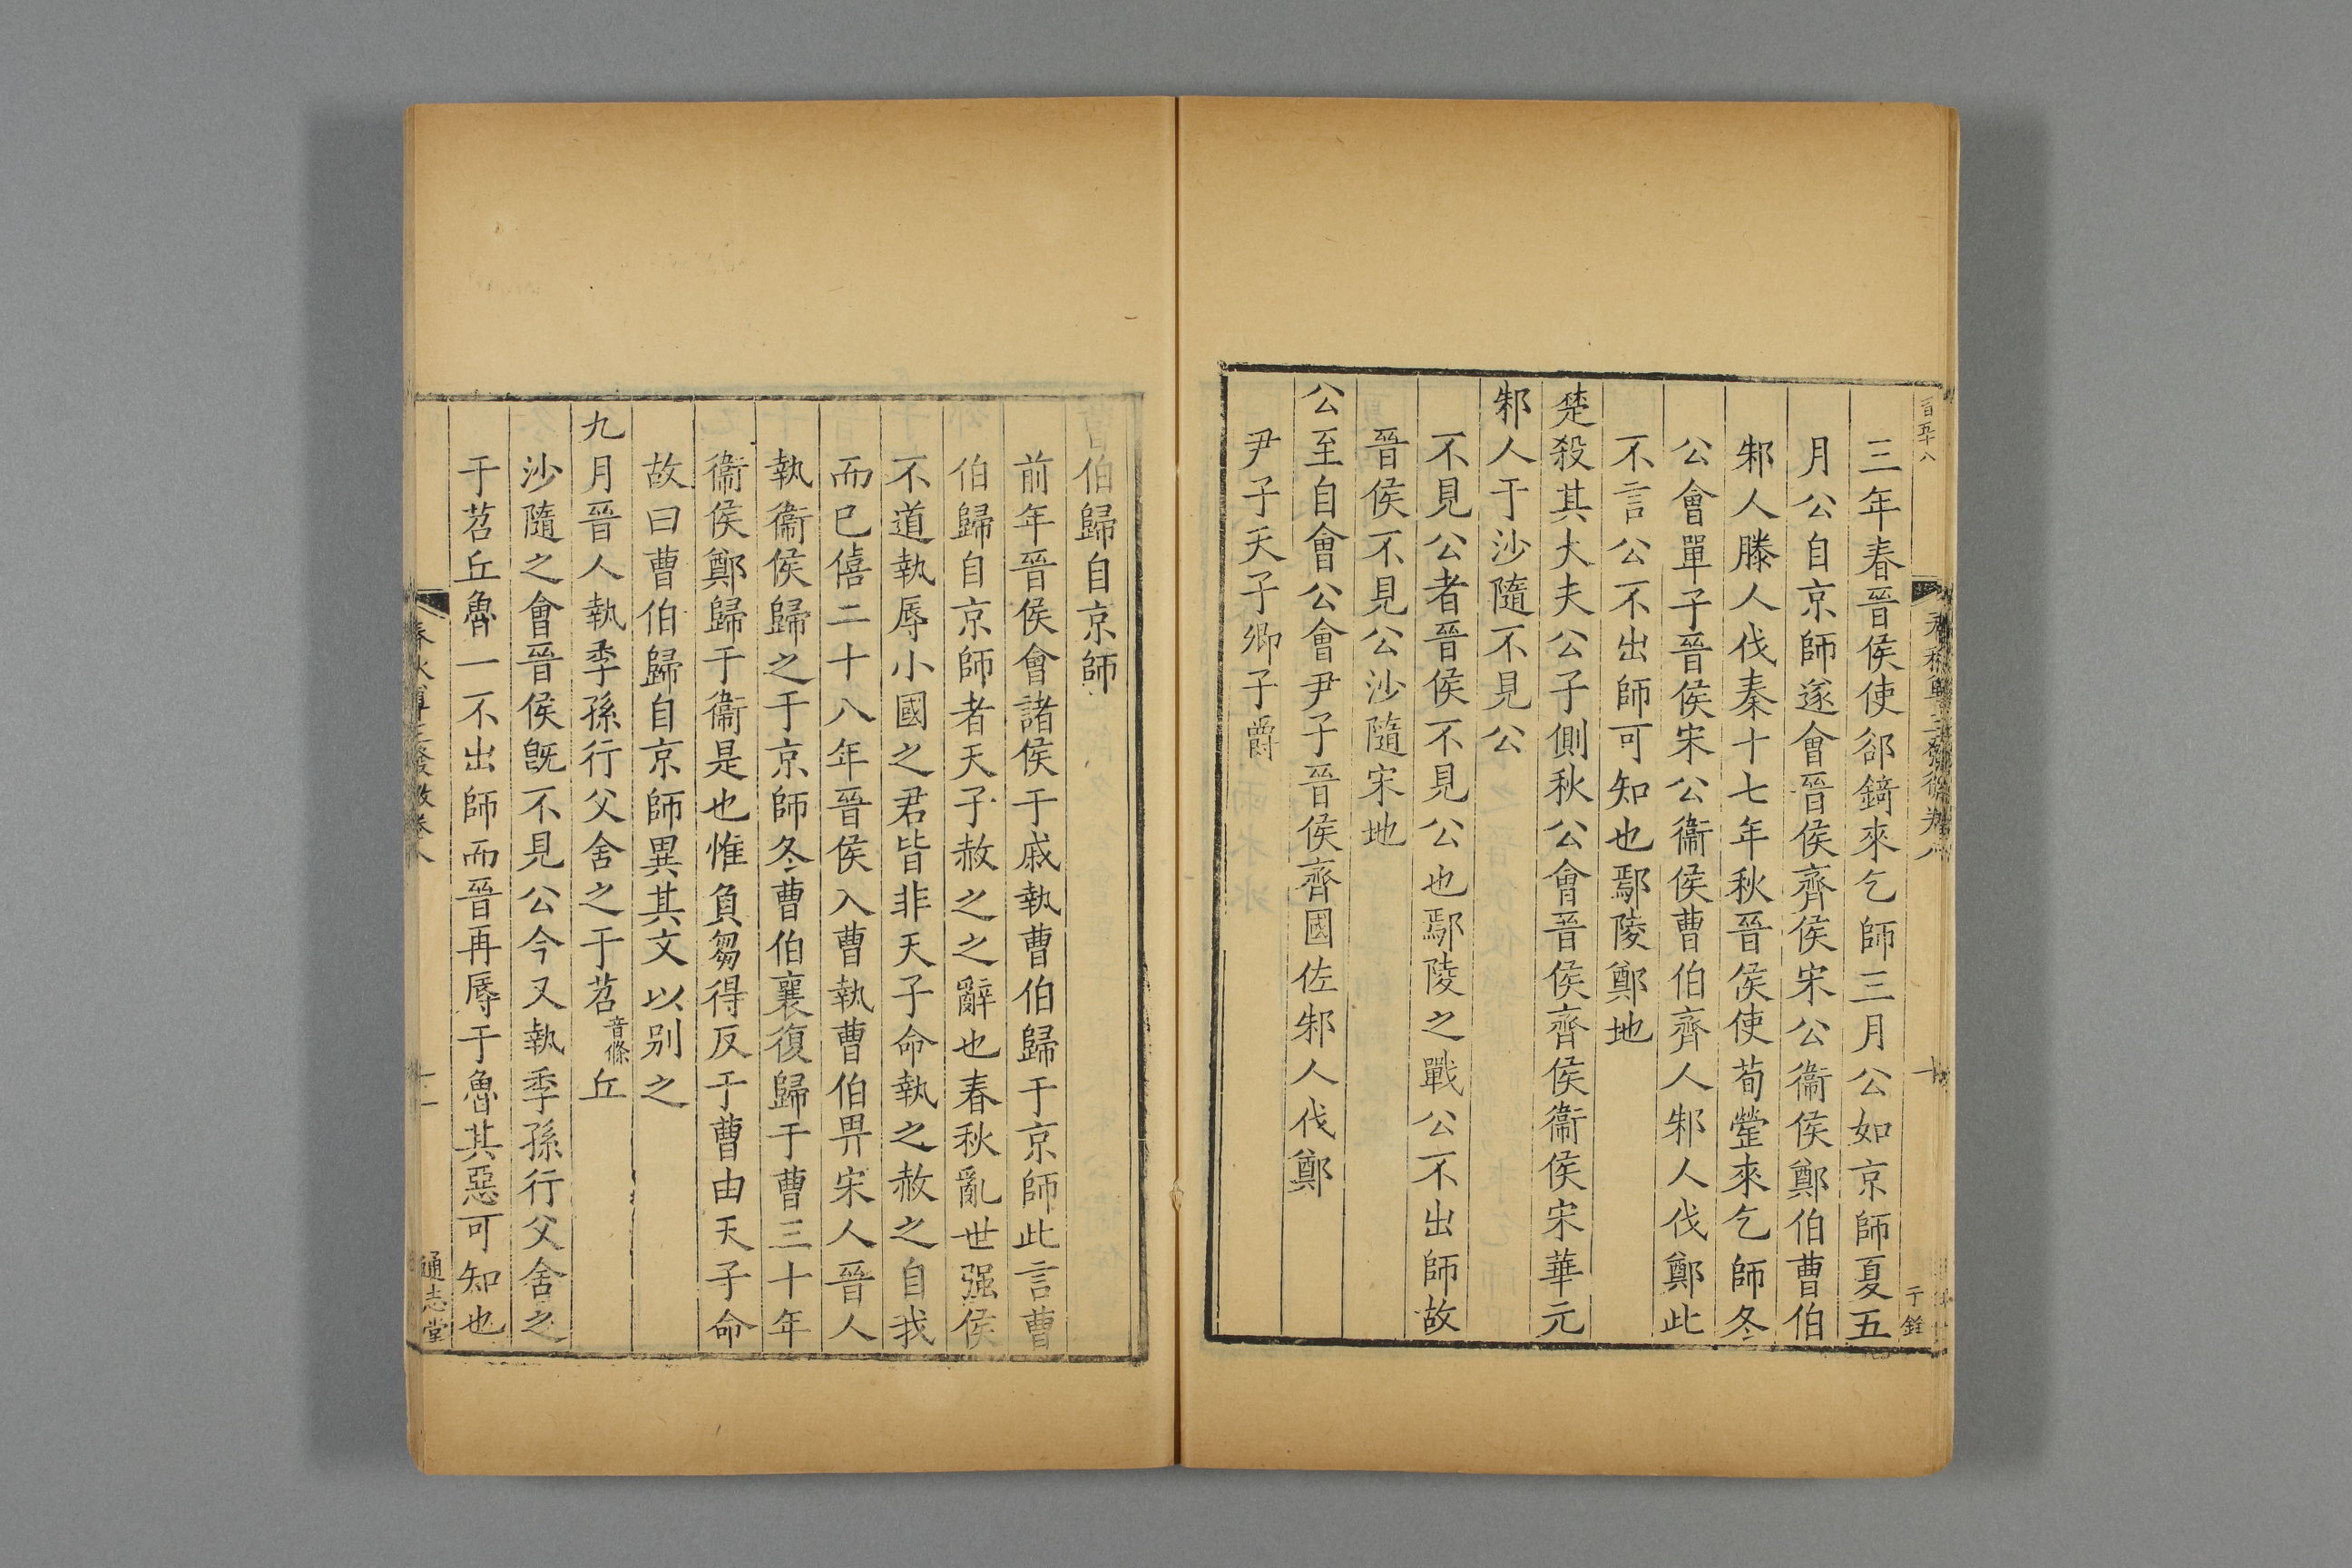 百五十八
三年春晉侯使郤錡來乞師三月公如京師夏五
月公自京師遂會晉侯齊侯宋公衞侯鄭伯曹伯
邾人滕人伐秦十七年秋晉侯使荀罃來乞師冬
公會單子晉侯宋公衞侯曹伯齊人邾人伐鄭此
不言公不出師可知也鄢陵鄭地
楚殺其大夫公子側秋公會晉侯齊侯衞侯宋華元
邾人于沙隨不見公
不見公者晉侯不見公也鄢陵之戰公不出師故
晉侯不見公沙隨宋地
公至自會公會尹子晉侯齊國佐邾人伐鄭
尹子天子卿子爵
曹伯歸自京師
前年晉侯會諸侯于戚執曹伯歸于京師此言曹
伯歸自京師者天子赦之之辭也春秋亂世强侯
不道執辱小國之君皆非天子命執之赦之自我
而已僖二十八年晉侯入曹執曹伯畀宋人晉人
執衞侯歸之于京師冬曹伯襄復歸于曹三十年
衞侯鄭歸于衞是也惟負芻得反于曹由天子命
故曰曹伯歸自京師異其文以别之
九月晉人執季孫行父舍之于苕音條丘
沙隨之會晉侯旣不見公今又執季孫行父舍之
于苕丘魯一不出師而晉再辱于魯其惡可知也
春秋尊王發微卷八
十一
通志堂